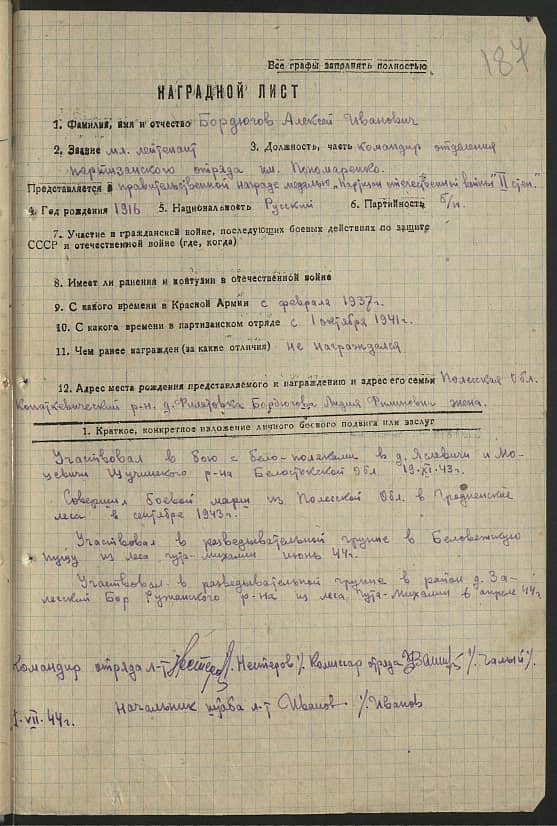 187
Все графы заполнять полностью
НАГРАДНОЙ ЛИСТ
1. Фамилия, имя и отчество Бордюгов Алексей Иванович
2. Звание мл. лейтенант 3. Должность, часть командир отделения
партизанского отряда им. Пономаренко.
Представляется к правительственной награде медалью "Партизан отечественной войны" II степ."
4. Год рождения 1916 5. Национальность Русский 6. Партийность б/п.
7. Участие в гражданской войне, последующих боевых действиях по защите
СССР и отечественной войне (где, когда)
8. Имеет ли ранения и контузии в отечественной войне
9. С какого времени в Красной Армии с февраля 1937г.
10. С какого времени в партизанском отряде с 1 октября 1941г.
11. Чем ранее награжден (за какие отличия) не награждался
12. Адрес места рождения представляемого к награждению и адрес его семьи Полесская Обл.
Копаткевический р-н. д. Филатовка Бордюгова Лидия жена.
1. Краткое, конкретное изложение личного боевого подвига или заслуг
Участвовал в бою с бело-поляками в д. и Мо-
цевичи Щучинского р-на Белостокской Обл 19.XI.43г.
Совершил боевой марш из Полесской Обл. в Гродненские
леса в сентябре 1943г.
Участвовал в разведывательной группе в Беловежскую
пущу из леса июнь 44г.
Участвовал в разведывательной группе в район д. За-
лесский Бор Ружанского р-на из леса в апреле 44г
Командир отряда л-т /Нестеров/. Комиссар отряда /Чалый/.
Начальник штаба л-т Иванов /Иванов
VII.44г.